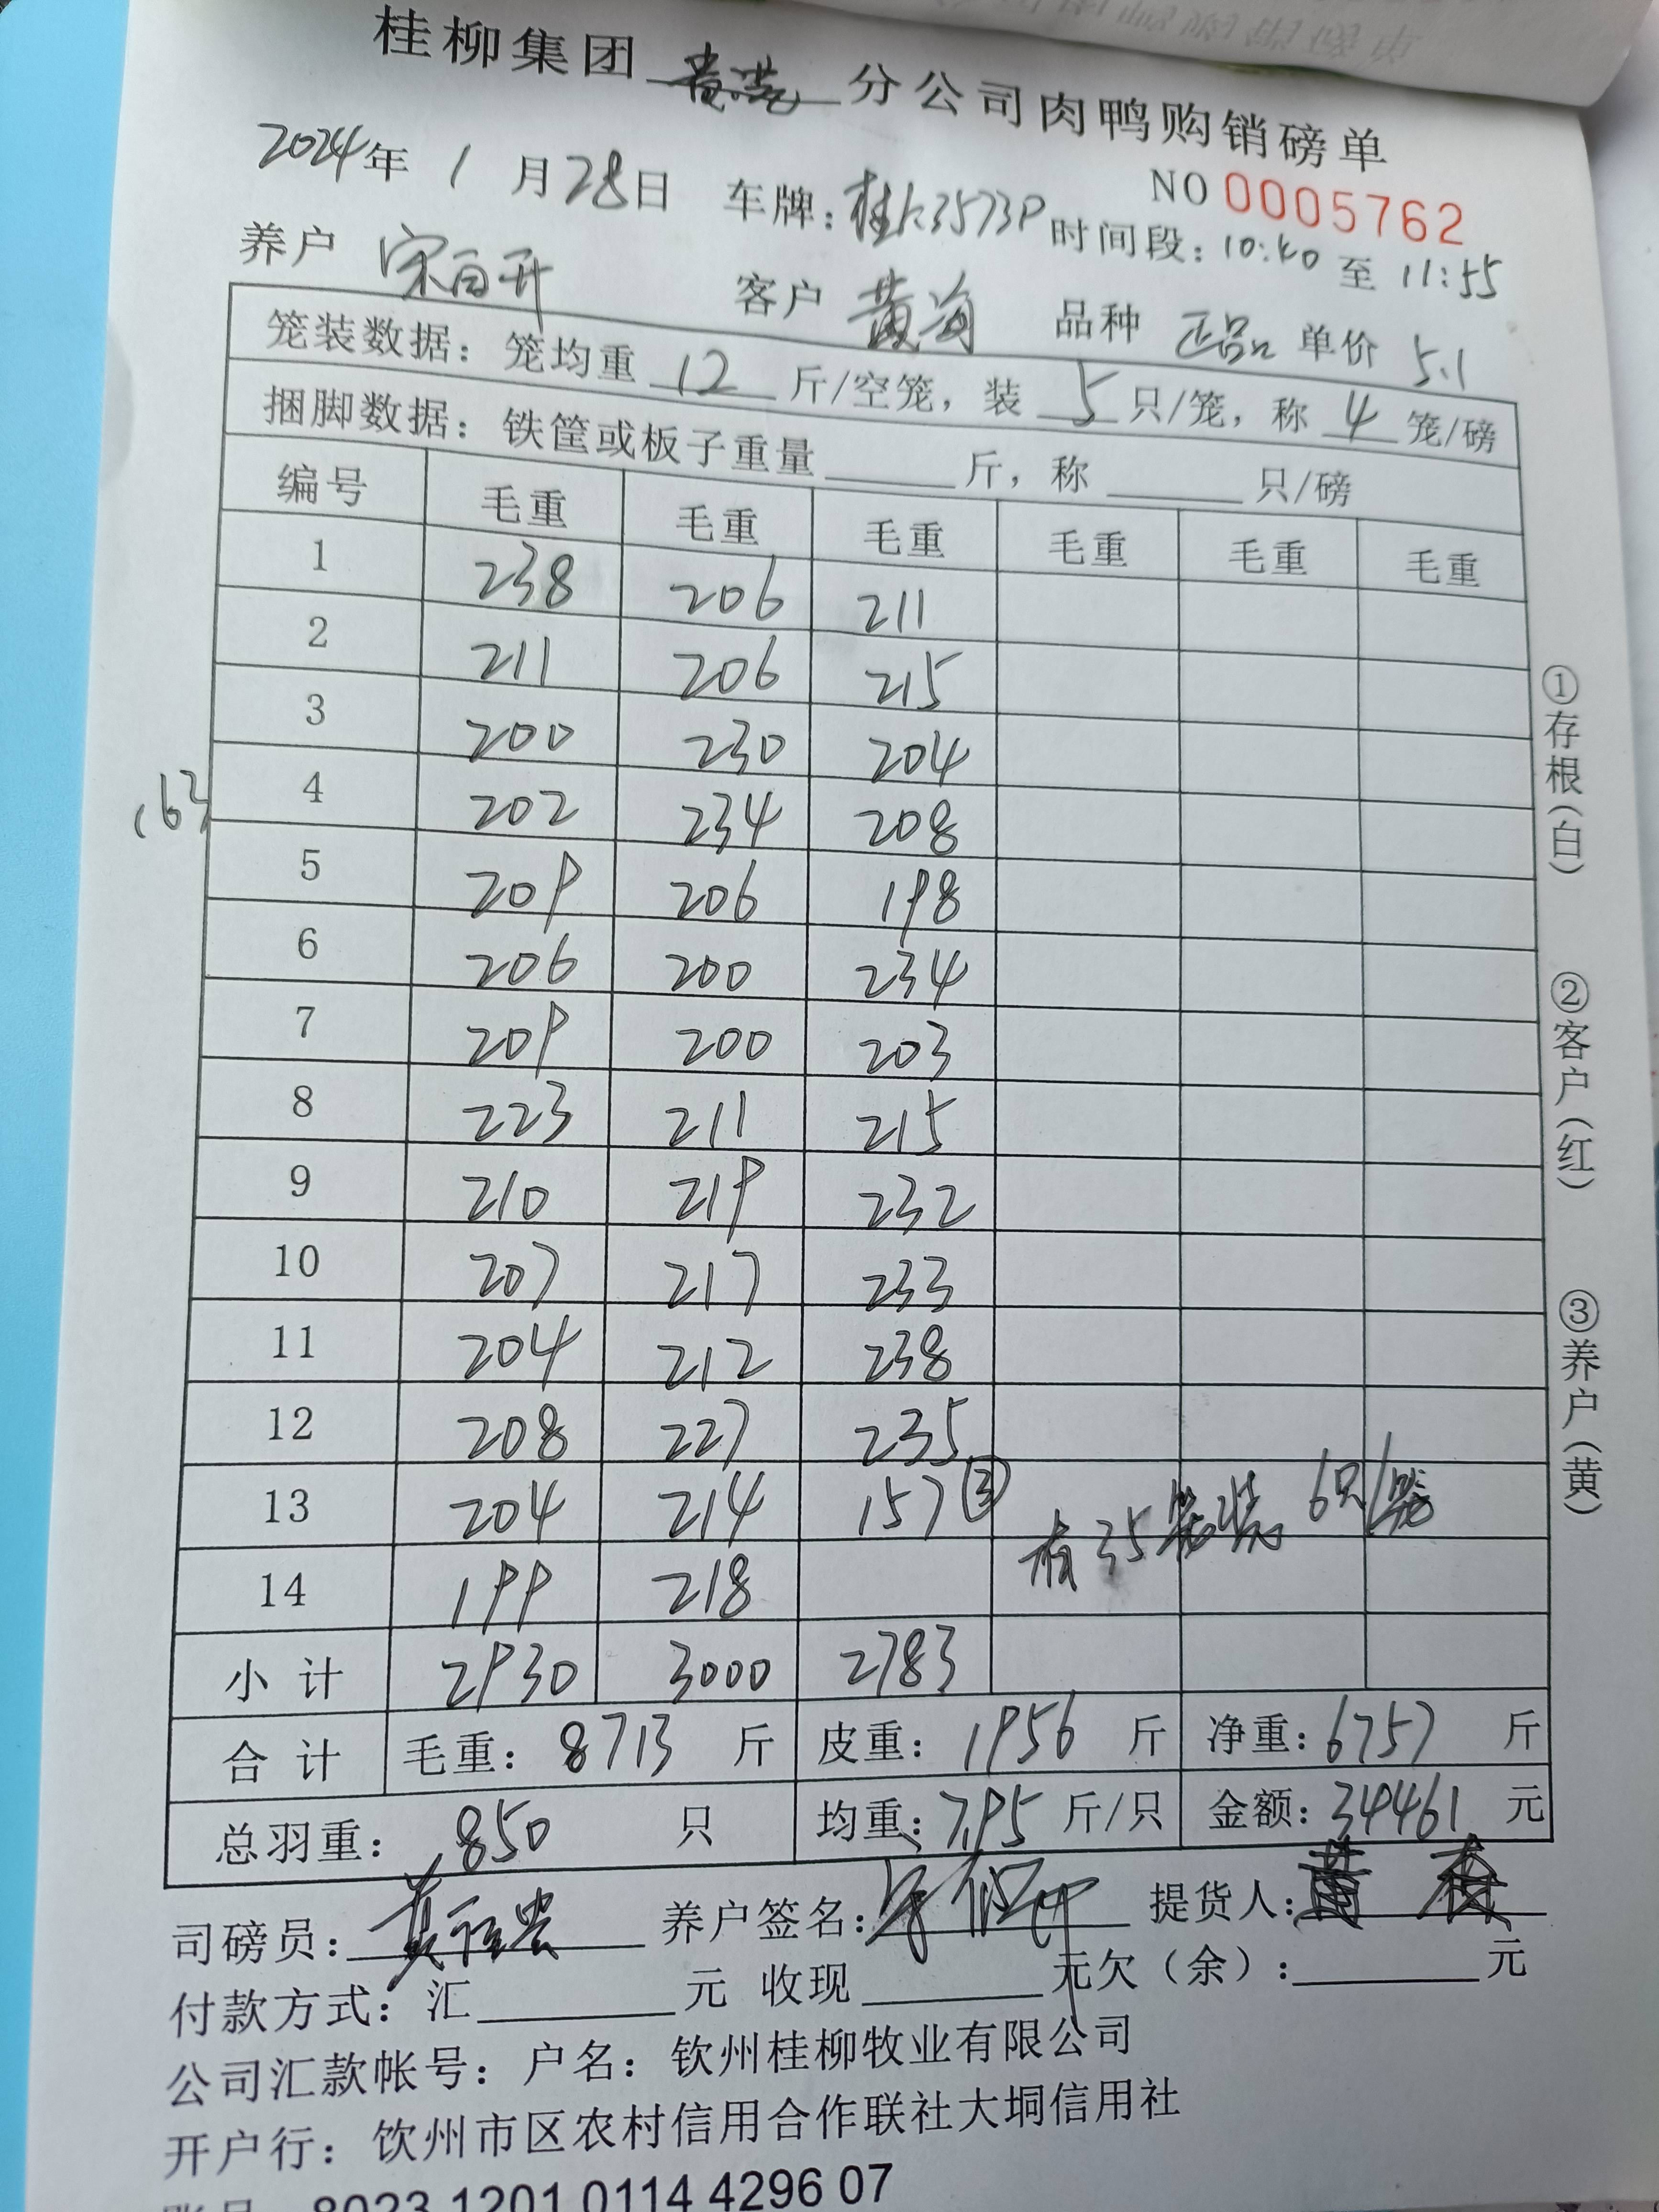 桂柳集团 贵港 分公司肉鸭购销磅单
NO 0005762
2024年 1 月 28 日 车牌: 桂K3573P 时间段: 10:40 至 11:55
养户 客户 黄海 品种 正品 单价 5.1
笼装数据: 笼均重 12 斤/空笼, 装 5 只/笼, 称 4 笼/磅
捆脚数据: 铁筐或板子重量 斤, 称 只/磅
编号 毛重 毛重 毛重 毛重 毛重 毛重
1 238 206 211
2 211 206 215
3 200 230 204
163
4 202 234 208
5 209 206 198
6 206 200 234
7 209 200 203
8 223 211 215
9 210 219 232
10 207 217 233
11 204 212 238
12 208 227 235
13 204 214 157 ③
有35笼装 6只/笼
14 199 218
小计 2930 3000 2783
合计 毛重: 8713 斤 皮重: 1956 斤 净重: 6757 斤
总羽重: 850 只 均重: 7.95 斤/只 金额: 34461 元
司磅员: 养户签名: 提货人:
付款方式: 汇 元 收现 元欠（余）: 元
公司汇款帐号: 户名: 钦州桂柳牧业有限公司
开户行: 钦州市区农村信用合作联社大垌信用社
8023 1201 0114 4296 07
①存根（白）
②客户（红）
③养户（黄）